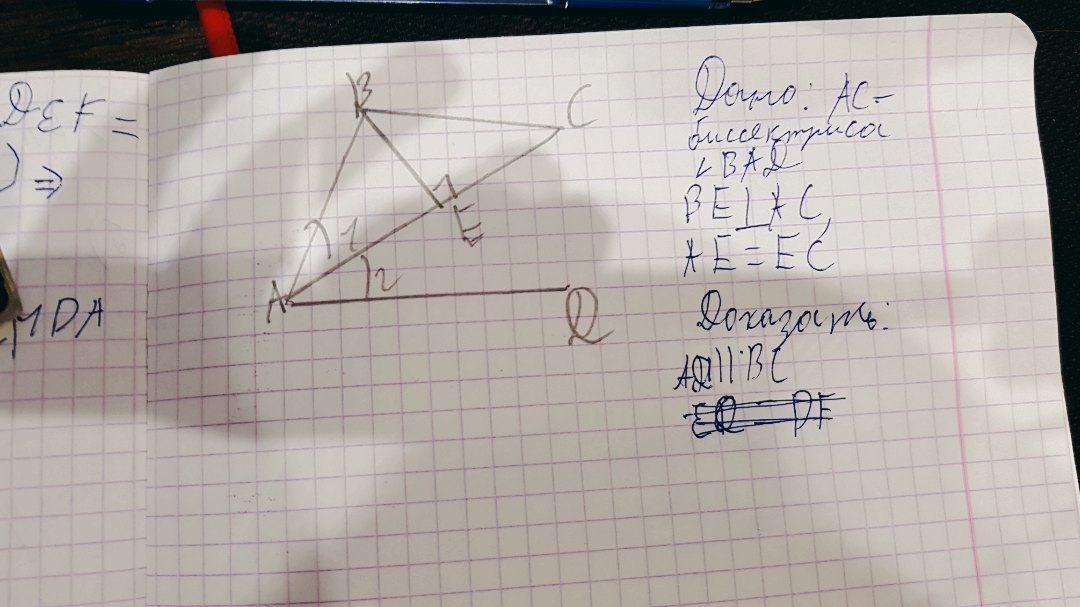 DEF =
) ⇒
MDA
B
C
1
E
A
2
D
Дано: AC-
биссектриса
∠BAD
BE⊥AC,
AE=EC
Доказать:
AD||BC